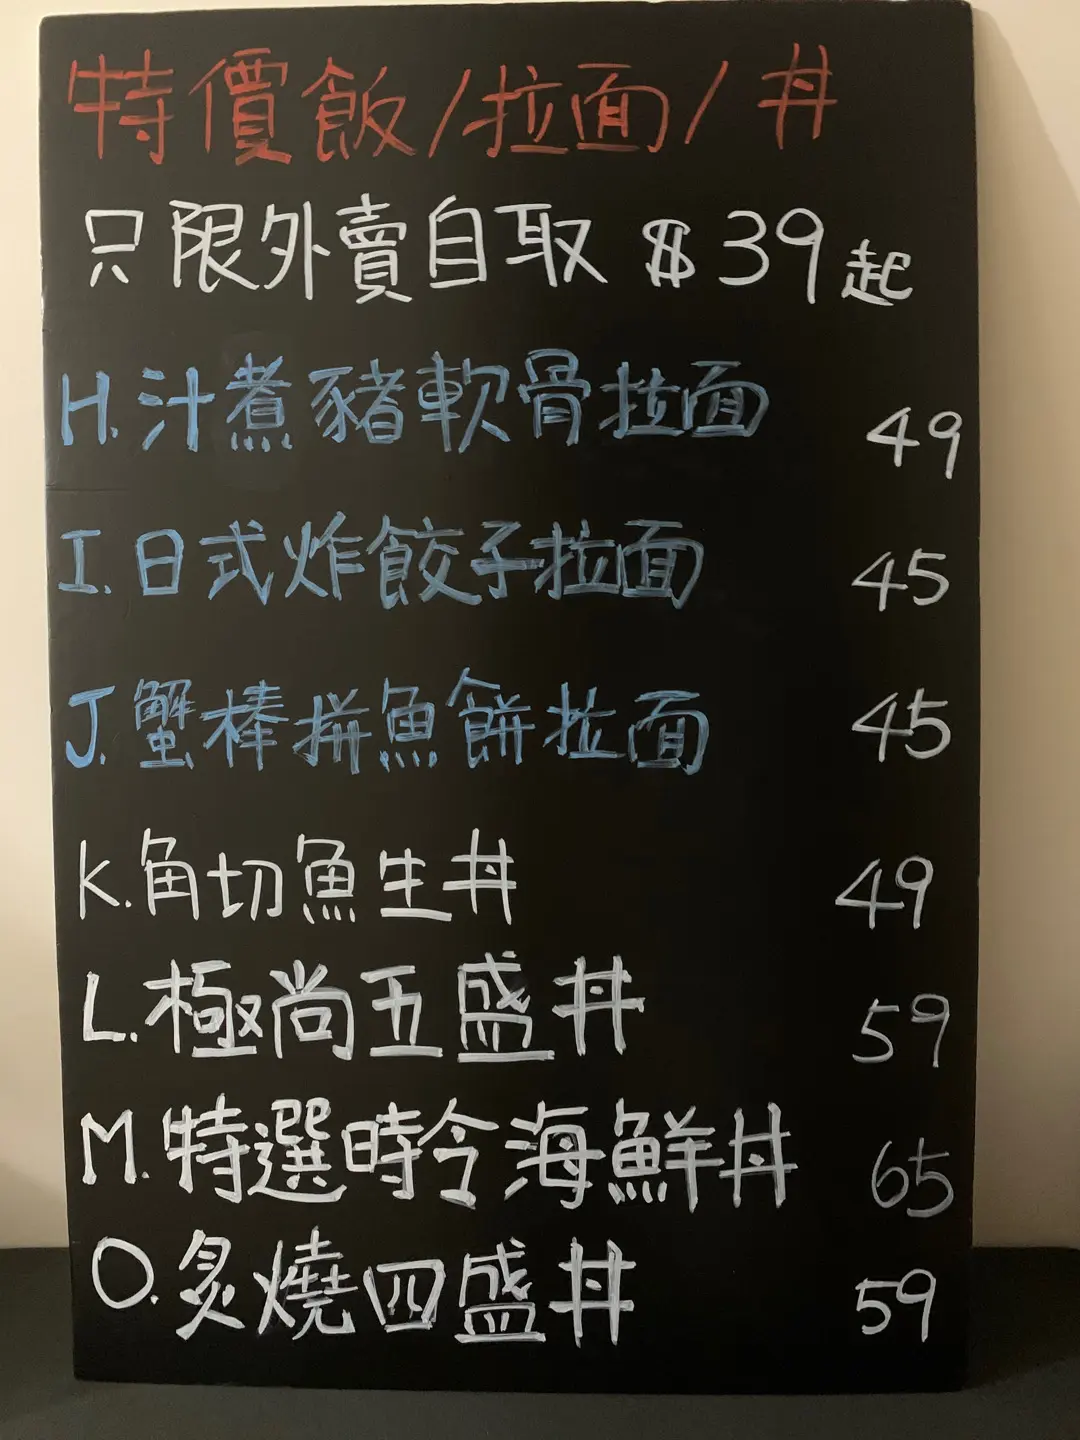 特價飯/拉面/丼
只限外賣自取 $39起
H.汁煮豬軟骨拉面 49
I.日式炸餃子拉面 45
J.蟹棒拼魚餅拉面 45
K.角切魚生丼 49
L.極尚五盛丼 59
M.特選時令海鮮丼 65
O.炙燒四盛丼 59